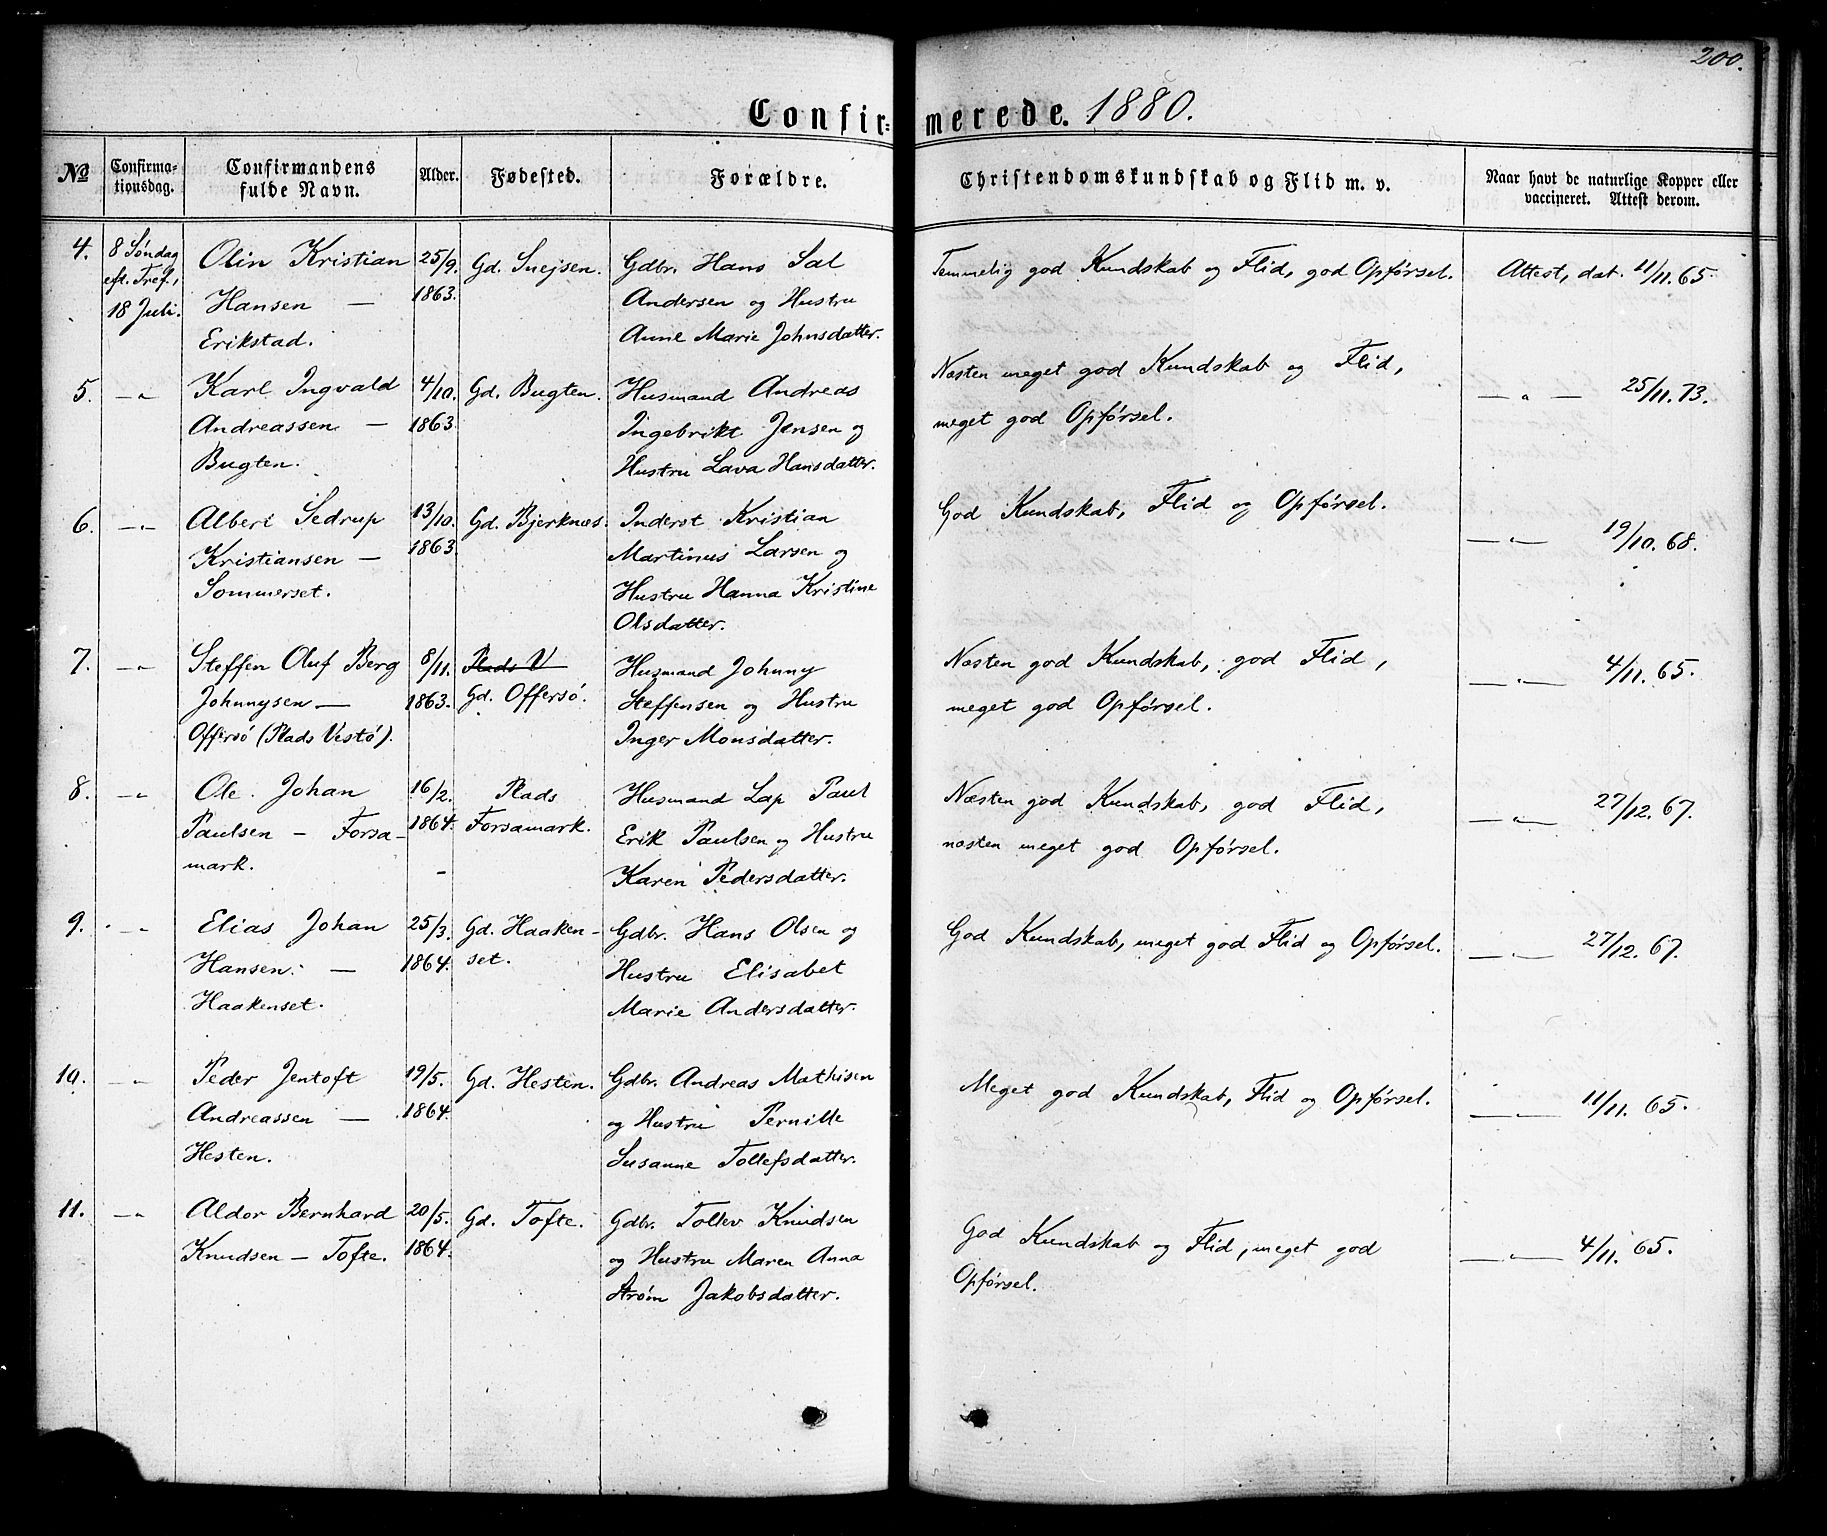 200.
Confirmerede. 1880.
No Confirmationsdag. Confirmandens fulde Navn. Alder. Fødested. Forældre. Christendomskundskab og Flid m. v. Naar havt de naturlige Kopper eller vaccineret. Attest derom.
4. 8 Søndag Olin Kristian 25/9. Gd. Snejsen. Gdbr. Hans Sal Temmelig god Kundskab og Flid, god Opførsel. Attest, dat. 11/11. 65.
eft. Tref., Hansen — 1863. Andersen og Hustru
18 Juli. Erikstad. Anne Marie Johnsdatter.
5. —„— Karl Ingvald 4/10. Gd. Bugten. Husmand Andreas Næsten meget god Kundskab og Flid, —„— 25/11. 73.
Andreassen — 1863. Ingebrikt Jensen og meget god Opførsel.
Bugten. Hustru Lava Hansdatter.
6. —„— Albert Sedrup 13/10. Gd. Bjerknæs. Inderst Kristian God Kundskab, Flid og Opførsel. —„— 19/10. 68.
Kristiansen — 1863. Martinus Larsen og
Sommerset. Hustru Hanna Kristine
Olsdatter.
7. —„— Steffen Oluf Berg 8/11. Plads V Husmand Johnny Næsten god Kundskab, god Flid, —„— 4/11. 65.
Johnnysen — 1863. Gd. Offersø. Steffensen og Hustru meget god Opførsel.
Offersø (Plads Vestø). Inger Monsdatter.
8. —„— Ole Johan 16/2. Plads Husmand Lap Paul Næsten god Kundskab, god Flid, —„— 27/12. 67.
Paulsen — Forsa- 1864. Forsamark. Erik Paulsen og Hustru næsten meget god Opførsel.
mark. Karen Pedersdatter.
9. —„— Elias Johan 25/3. Gd. Haaken- Gdbr. Hans Olsen og God Kundskab, meget god Flid og Opførsel. —„— 27/12. 67.
Hansen. — 1864. set. Hustru Elisabet
Haakenset. Marie Andersdatter.
10. —„— Peder Jentoft 19/5. Gd. Hesten. Gdbr. Andreas Mathisen Meget god Kundskab, Flid og Opførsel. —„— 11/11. 65.
Andreassen — 1864. og Hustru Pernille
Hesten. Susanne Tollefsdatter.
11. —„— Aldor Bernhard 20/5. Gd. Tofte. Gdbr. Tollev Knudsen God Kundskab og Flid, meget god —„— 4/11. 65.
Knudsen — Tofte. 1864. og Hustru Maren Anna Opførsel.
Strøm Jakobsdatter.